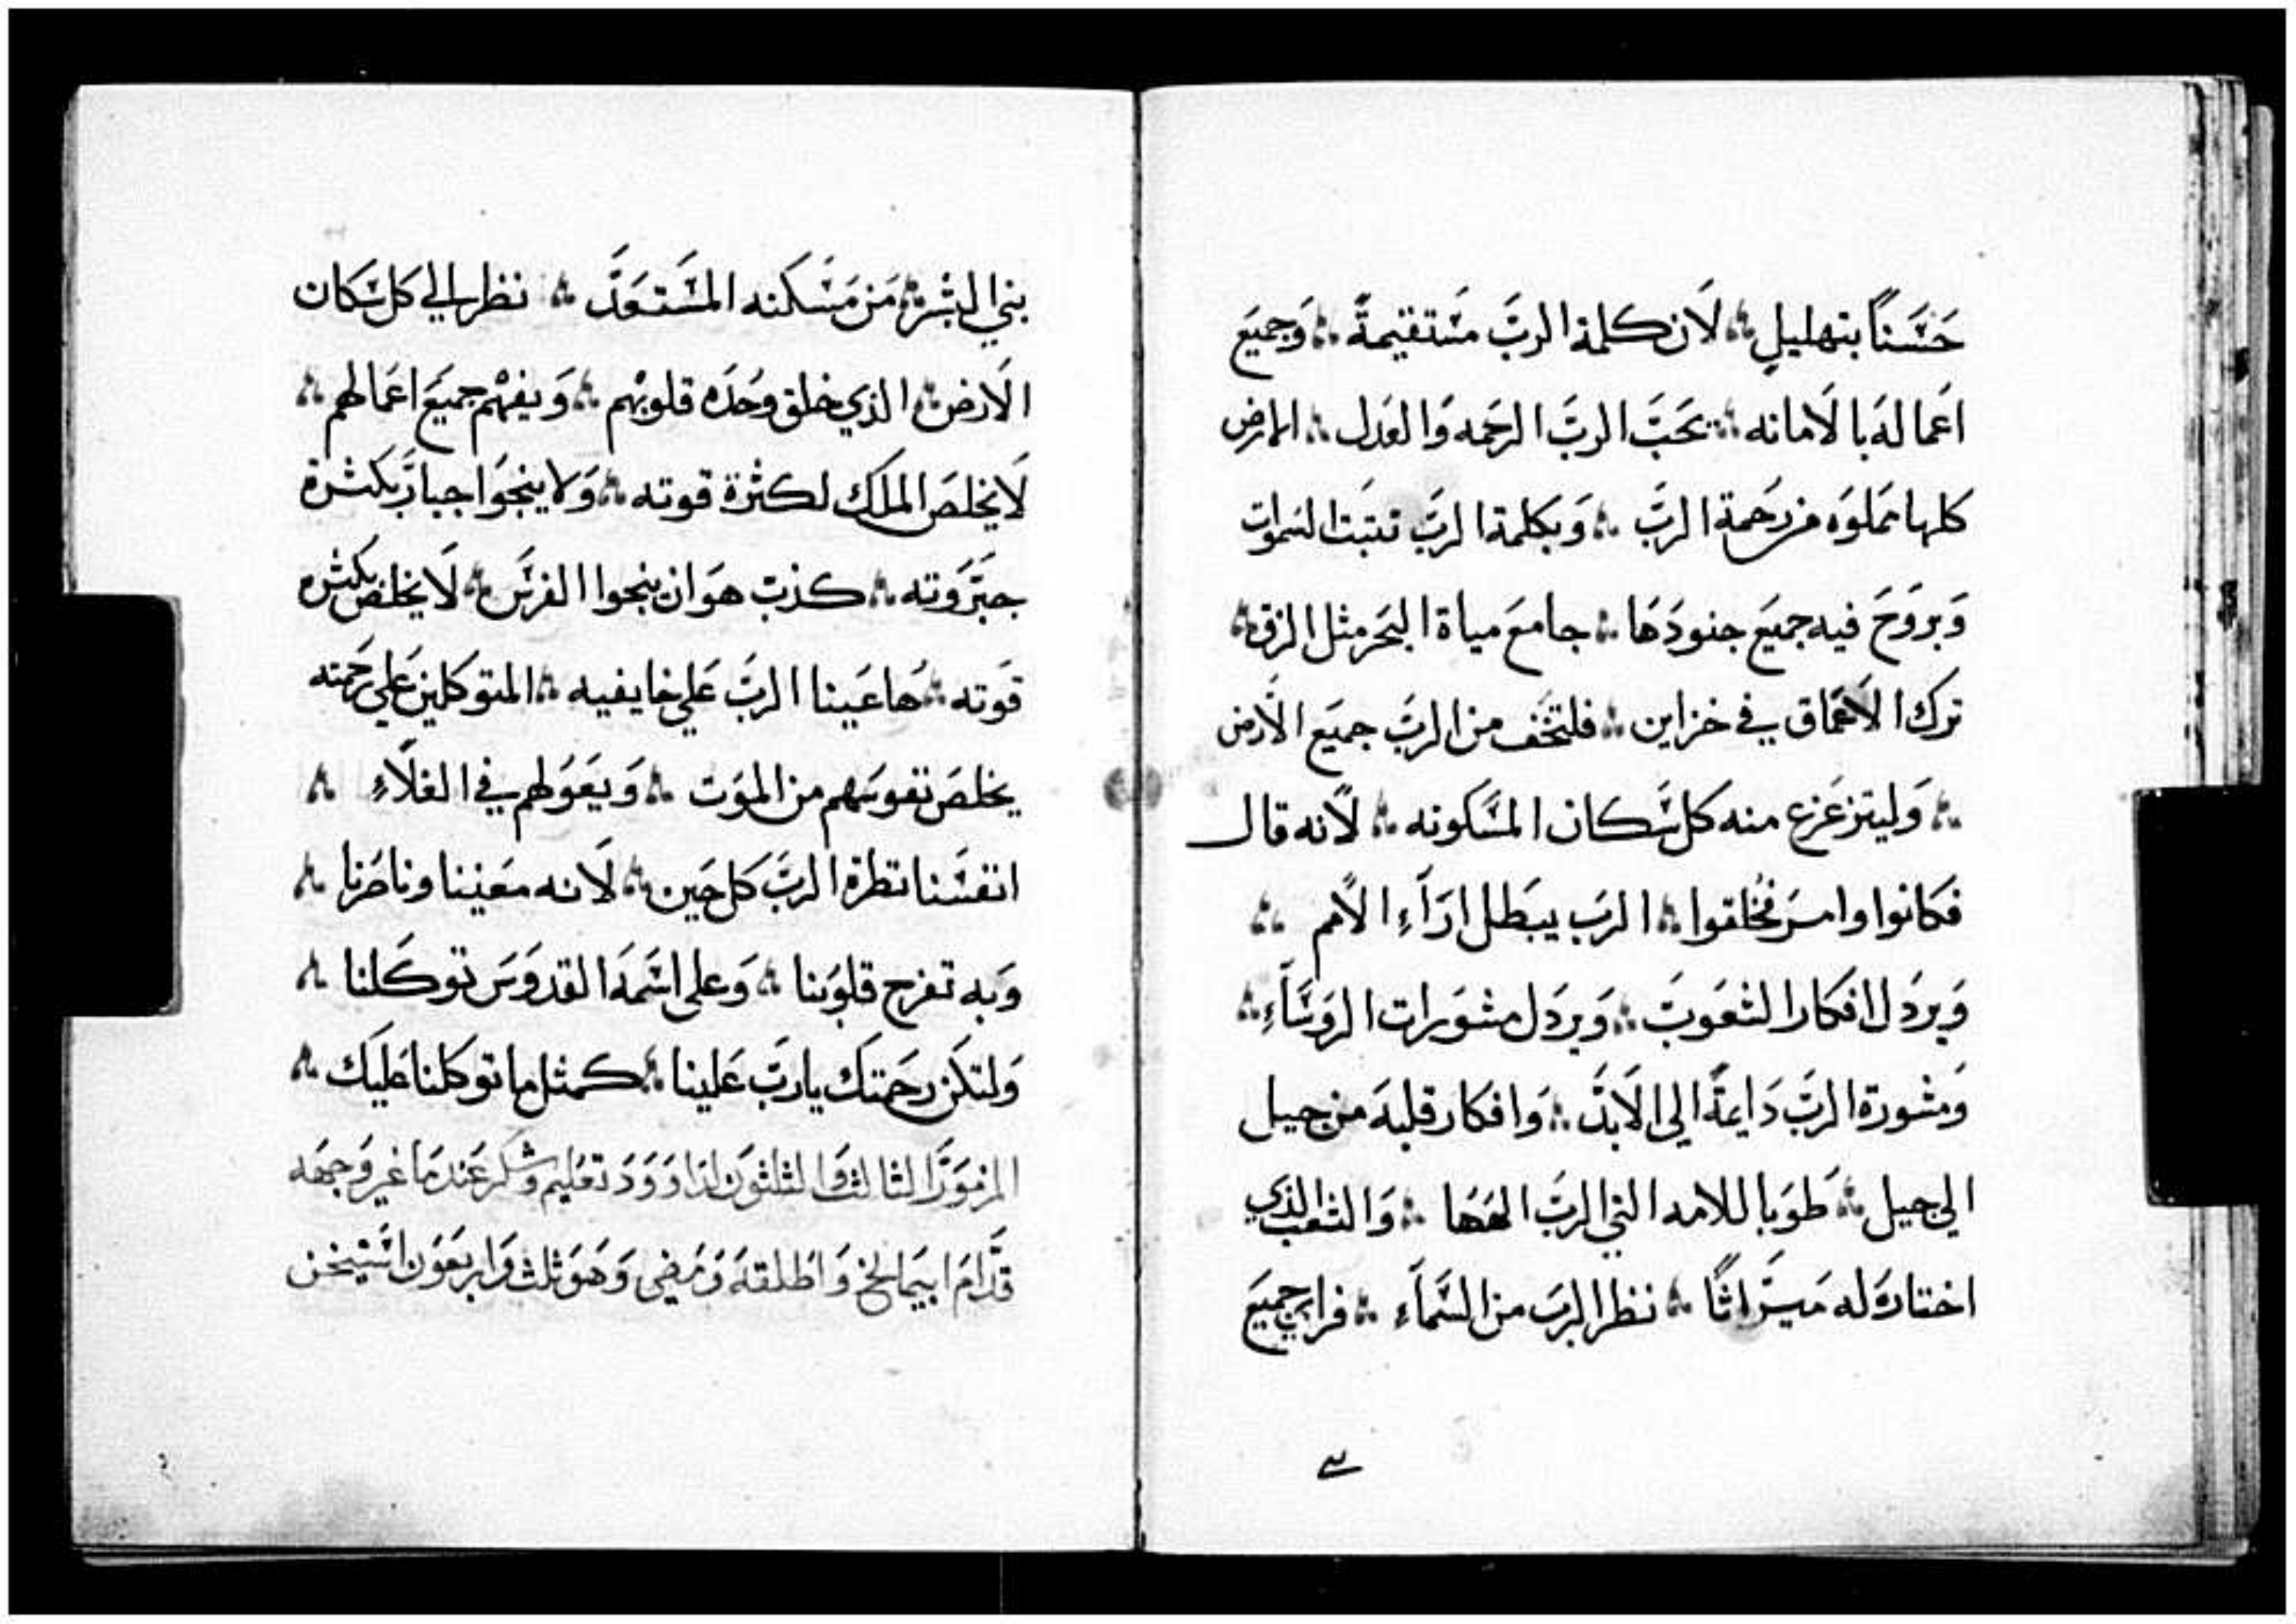 حَسَنًا بتهليلٍ ∴ لَان كلمة الربَّ مسَتقيمةً ∴ وَجميَع
اعَماله بالَامانه ∴ يحَبَّ الربَّ الرحَمه وَالعَدل ∴ الارض
كلها مملوَه من رحَمة الربَّ ∴ وَبكلمة الربَّ تتبَت السموات
وَبروَحَ فيه جميَع جنودَهَا ∴ جامَع مياة البحَر مثل الزق ∴
ترك الَاعَماق في خزاين ∴ فلتخَف من الربَّ جميَع الَارض
∴ وَليتزعَزع منه كل سَكان المسَكونه ∴ لَانه قال
فكانوا وامسَر فخُلقوا ∴ الربَ يبَطل ارَآءِ الَامم ∴
وَيردَل افكار الشعَوبَ ∴ وَيردَل مشوَرات الروَسَآءِ ∴
وَمشورة الربَّ دَايمةً الي الَابدَّ ∴ وَافكار قلبهَ من جيل
الي جيل ∴ طَوَبا للامه التي الربَّ الههَا ∴ وَالشعَب الذي
اختارهَ له ميَرَاثًا ∴ نظر الربَ من السَمَآءِ ∴ فراي جميَع
بني البشر ∴ مَن مسَكنه المسَتعَدَّ ∴ نظر الي كل سَكان
الَارض ∴ الذي خلق وحُدَه قلوبهْم ∴ وَيفهْم جميَع اعَمالهم ∴
لَا يخلصَ الملَك لكثرة قوته ∴ وَلا ينجَوُا جبارَّ بكثرة
جبَّرَوته ∴ كذبَ هوَ ان ينجوا الفرسَ ∴ لَا يخلصَ بكثره
قوَته ∴ هَا عَينا الربَّ عَلي خايفيه ∴ المتوكلين عَلي رحَمته
يخلصَ نفوسَهم من الموَت ∴ وَيعَوَلهم في الغلَآءِ ∴
انفسَنا تنظرة الربَّ كل حَين ∴ لَانه معَيننا وناصَرنا ∴
وَبه تفرح قلوَبنا ∴ وَعلي اسَمهَ القدوَسَ توكَلنا ∴
وَلتكَن رحَمتَك يا ربَّ عَلينا ∴ كمثل ما توكلنا عَليَك ∴
المزموَرَّ الثالث وَالثلثوَن لدَاوَوَدَ تعَليم وشكر عَندَمَا غيروَجهَه
قدَّامَ ابيمَالخ وَاطَلقهَ وَمَضي وَهَوَ ثلث وَاربعَوَن استَيخن